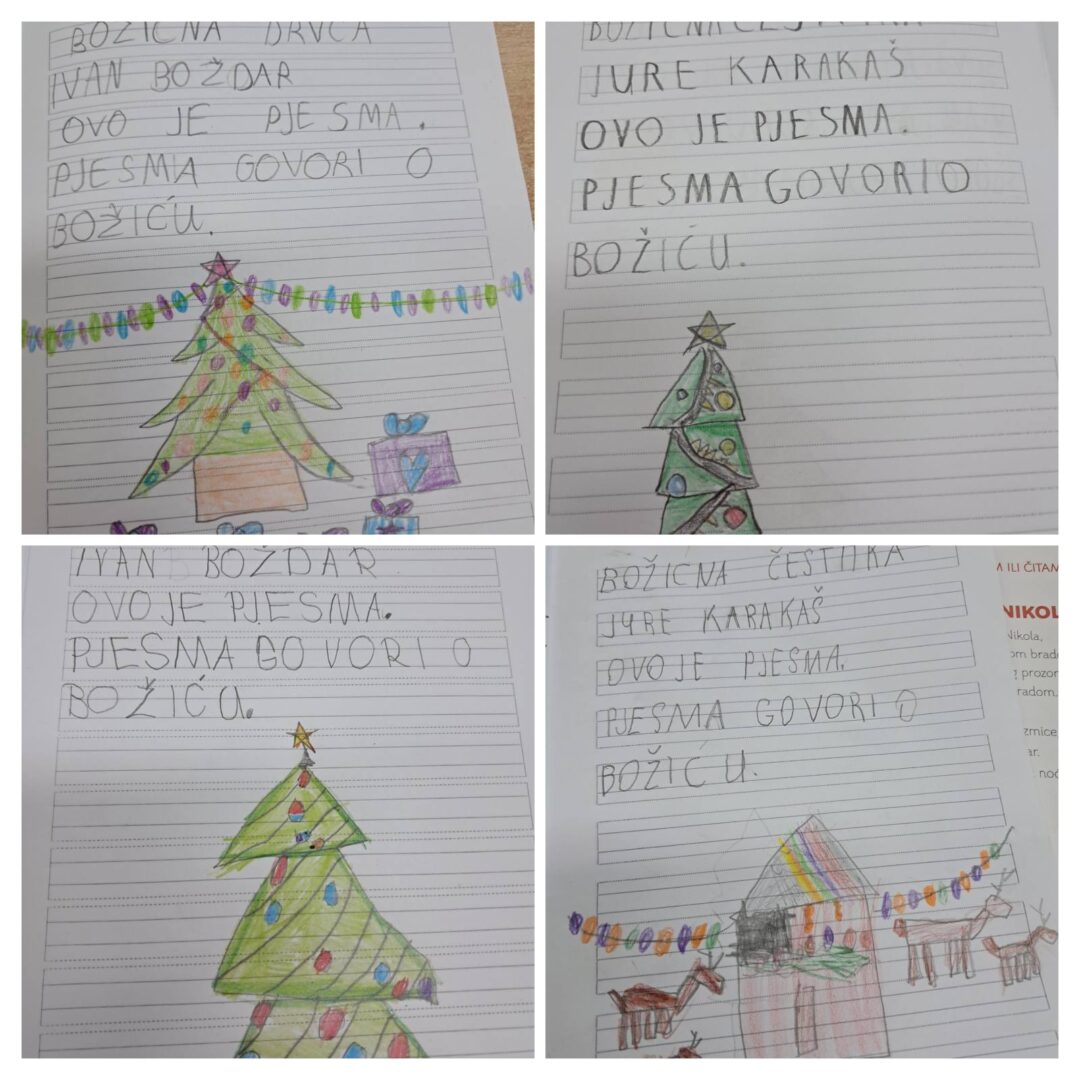 BOŽIČNA DRVCA
IVAN BOŽDAR
OVO JE PJESMA.
PJESMA GOVORI O
BOŽIĆU.
JURE KARAKAŠ
OVO JE PJESMA.
PJESMA GOVORI O
BOŽIĆU.
IVAN BOŽDAR
OVO JE PJESMA.
PJESMA GOVORI O
BOŽIĆU.
BOŽIČNA ČESTITKA
JURE KARAKAŠ
OVO JE PJESMA.
PJESMA GOVORI O
BOŽIĆU.
ILI ČITAM
NIKOL
Nikola,
prozor